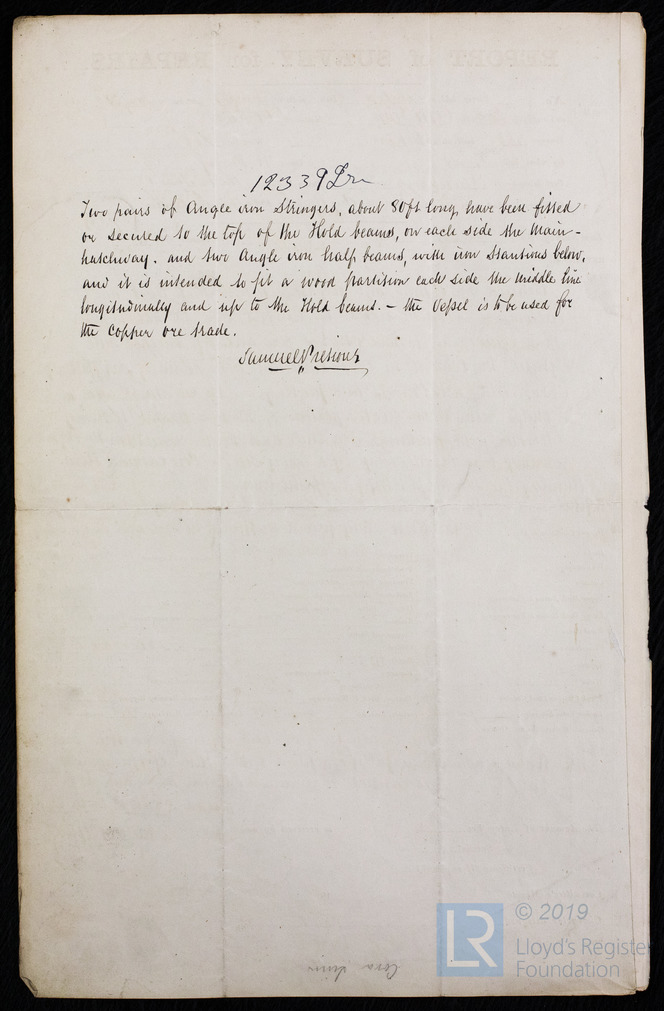 12339 Lrn
Two pairs of Angle iron Stringers, about 80ft long, have been fitted
or secured to the top of the Hold beams, on each side the Main-
hatchway. and two Angle iron half beams, with iron Stantions below,
and it is intended to fit a wood partition each side the middle line
longitudinally and up to the Hold beams. – the Vessel is to be used for
the Copper ore trade.
Samuel Pretious
LR
© 2019
Lloyd's Register
Foundation